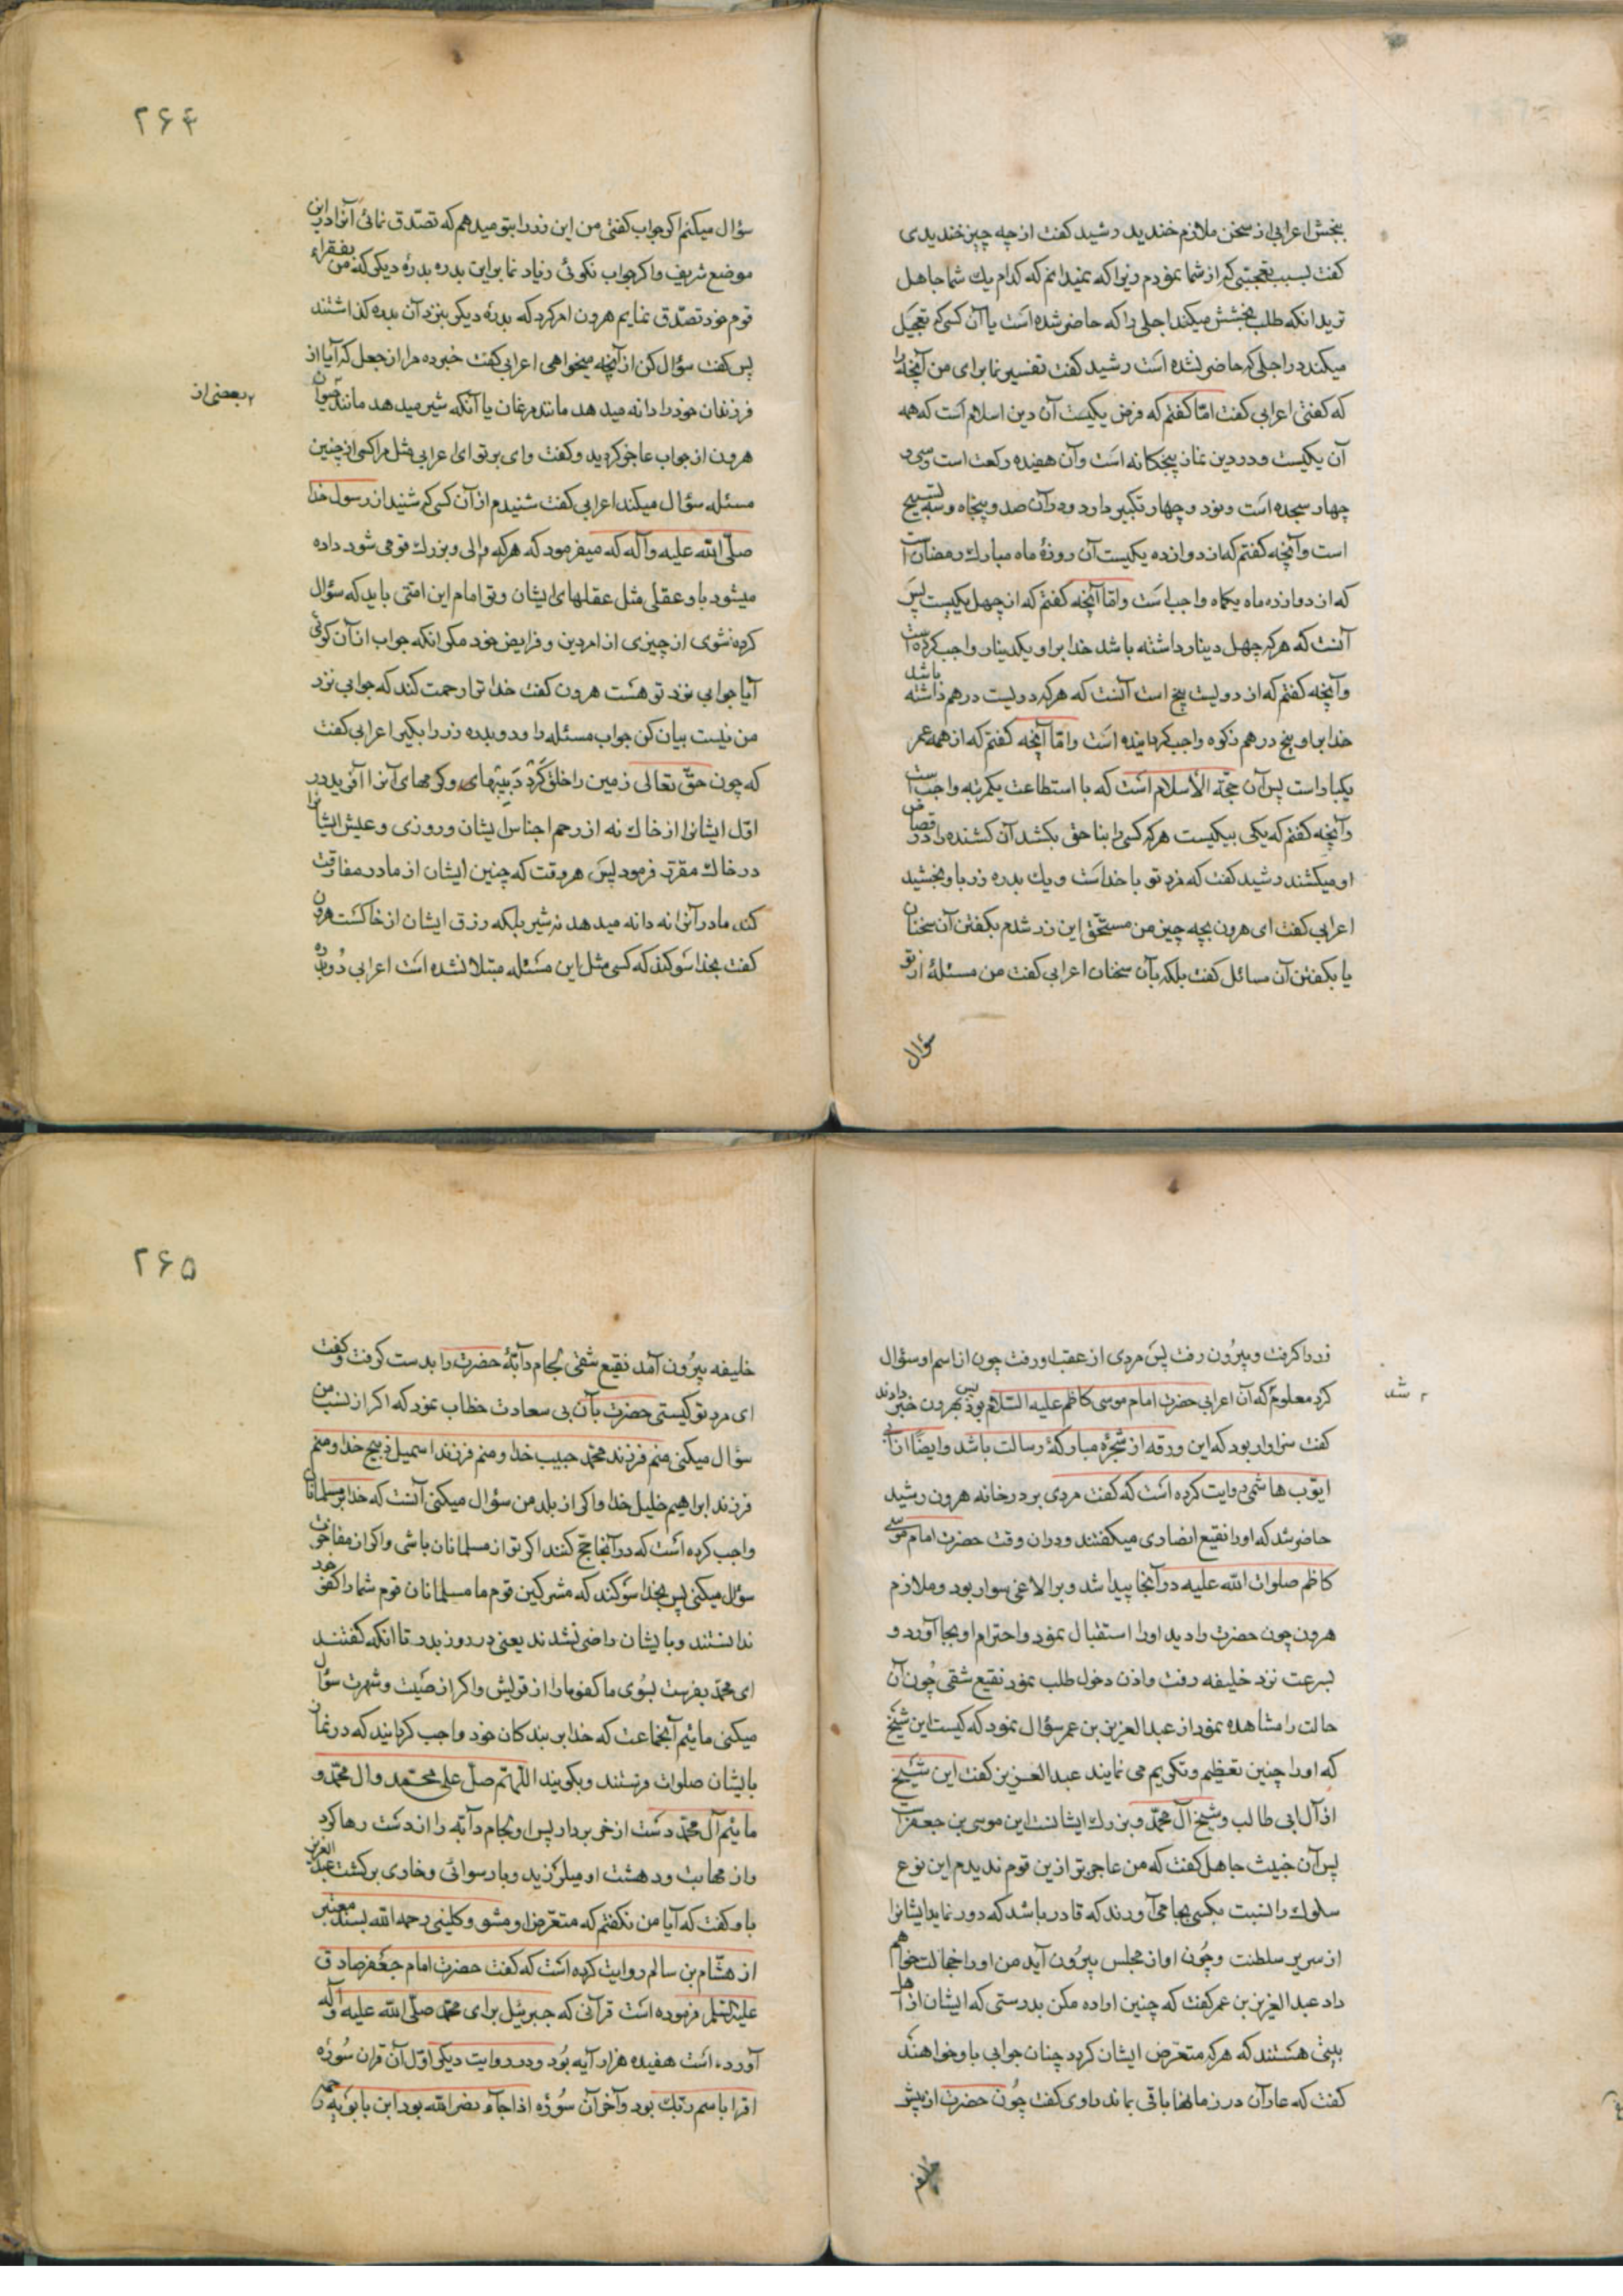 ببخش اعرابی از سخن ملازم خندید رشید کفت از چه چیز خندیدی
کفت بسبب تعجبی که از شما نمودم زیرا که نمیدانم که کدام یک شما جاهل
ترید انکه طلب بخشش میکند اجلی را که حاضر شده است یا آن کسی که تعجیل
میکند در اجلی که حاضر نشده است رشید کفت تفسیر نما برای من آنچه را
که کفتی اعرابی کفت امّا کفتم که فرض یکیست آن دین اسلام است که همه
آن یکیست و در دین نماز پنجکانه است و آن هفده رکعت است و سی و
چهار سجده است و نود و چهار تکبیر دارد و در آن صد و پنجاه و سه تسبیح
است و آنچه کفتم که از دوازده یکیست آن روزهٔ ماه مبارک رمضان است
که از دوازده ماه یکماه واجب است و امّا آنچه کفتم که از چهل یکیست پس
آنست که هر که چهل دینار داشته باشد خدا بر او یکدینار واجب کرده است
و آنچه کفتم که از دویست پنج است آنست که هر که دویست درهم داشته باشد
خدا بر او پنج درهم زکوه واجب کردانیده است و امّا آنچه کفتم که از همه عمر
یکبار است پس آن حجّة الاسلام است که با استطاعت یکمرتبه واجب است
و آنچه کفتم که یکی بیکیست هر که کسی را بنا حق بکشد آن کشنده را در قصاص
او میکشند رشید کفت که مزد تو با خداست و یک بدره زر باو بخشید
اعرابی کفت ای هرون بچه چیز من مستحقّ این زر شدم بکفتن آن سخنان
یا بکفتن آن مسائل کفت بلکه بآن سخنان اعرابی کفت من مسئلهٔ از تو
سؤال
۲۶۴
سؤال میکنم اکر جواب کفتی من این زر را بتو میدهم که تصدّق نمائی آنرا در این
موضع شریف و اکر جواب نکوئی زیاد نما بر این بدره بدرهٔ دیکر که من بفقراء
قوم خود تصدّق نمایم هرون امر کرد که بدرهٔ دیکر بنزد آن بدره کذاشتند
پس کفت سؤال کن از آنچه میخواهی اعرابی کفت خبر ده مرا از جعل که آیا از
فرزندان خود را دانه میدهد مانند مرغان یا آنکه شیر میدهد مانند حیوان
بعضی از
هرون از جواب عاجز کردید و کفت وای بر تو ای اعرابی مثل مرا کسی از چنین
مسئله سؤال میکند اعرابی کفت شنیدم از آن کسی که شنید از رسول خدا
صلّی الله علیه و آله که میفرمود که هر که والی و بزرک قومی شود داده
میشود باو عقلی مثل عقلهای ایشان و تو امام این امتی باید که سؤال
کرده نشوی از چیزی از امر دین و فرایض خود مکر انکه جواب از آن کوئی
آیا جوابی نزد تو هست هرون کفت خدا ترا رحمت کند که جوابی نزد
من نیست بیان کن جواب مسئله را و دو بدره زر را بکیر اعرابی کفت
که چون حقّ تعالی زمین را خلق کرد دبیبهای و کرمهای آنرا آفرید در
اوّل ایشانرا از خاک نه از رحم اجناس ایشان و روزی و عیش ایشانرا
در خاک مقرّر فرمود پس هر وقت که چنین ایشان از مادر مفارقت
کند مادر آنرا نه دانه میدهد نه شیر بلکه رزق ایشان از خاکست هرون
کفت بخدا سوکند که کسی مثل این مسئله مبتلا نشده است اعرابی دو بدره
زر را کرفت و بیرون رفت پس مردی از عقب او رفت چون از اسم او سؤال
کرد معلوم که آن اعرابی حضرت امام موسی کاظم علیه السّلام بود پس بهرون خبر دادند
شد
کفت سزاوار بود که این ورقه از شجرهٔ مبارکهٔ رسالت باشد و ایضًا از ابی
ایّوب هاشمی روایت کرده است که کفت مردی بر در خانه هرون رشید
حاضر شد که او را نقیع انصاری میکفتند و در ان وقت حضرت امام موسی
کاظم صلوات الله علیه در آنجا پیدا شد و بر الاغی سوار بود و ملازم
هرون چون حضرت را دید او را استقبال نمود و احترام او بجا آورد و
بسرعت نزد خلیفه رفت و اذن دخول طلب نمود نقیع شقی چون آن
حالت را مشاهده نمود از عبد العزیز بن عمر سؤال نمود که کیست این شیخ
که او را چنین تعظیم و تکریم می نمایند عبد العزیز کفت این شیخ
از آل ابی طالب و شیخ آل محمّد و بزرک ایشانست این موسی بن جعفر است
پس آن خبیث جاهل کفت که من عاجزتر از ین قوم ندیدم این نوع
سلوک را نسبت بکسی بجا می آورند که قادر باشد که دور نماید ایشانرا
از سریر سلطنت و چون او از مجلس بیرون آید من او را خجالت خواهم
داد عبد العزیز بن عمر کفت که چنین اراده مکن بدرستی که ایشان از اهل
بیتی هستند که هر که متعرّض ایشان کردد چنان جوابی باو خواهند
کفت که عار آن در زمانها باقی بماند راوی کفت چون حضرت از پیش
خلیفه
۲۶۵
خلیفه بیرون آمد نقیع شقی لجام دابّهٔ حضرت را بدست کرفت و کفت
ای مرد تو کیستی حضرت بآن بی سعادت خطاب نمود که اکر از نسب من
سؤال میکنی منم فرزند محمّد حبیب خدا و منم فرزند اسمعیل ذبیح خدا و منم
فرزند ابراهیم خلیل خدا و اکر از بلد من سؤال میکنی آنست که خدا بر مسلمانان
واجب کرده است که در آنجا حجّ کنند اکر تو از مسلمانان باشی و اکر از مفاخرت
سؤال میکنی پس بخدا سوکند که مشرکین قوم ما مسلمانان قوم شما را کفو خود
ندانستند و بایشان راضی نشدند یعنی در روز بدر تا انکه کفتند
ای محمّد بفرست بسوی ما کفو ما را از قریش و اکر از صیت و شهرت سؤال
میکنی مائیم آنجماعت که خدا بر بندکان خود واجب کردانید که در نماز
بایشان صلوات فرستند و بکویند اللّهمّ صلّ علی محمّد و ال محمّد و
مائیم آل محمّد دست از خر بردار پس او لجام دابّه را از دست رها کرد
و از مهابت و دهشت او میلرزید و با رسوائی و خاری برکشت عبد العزیز
باو کفت که آیا من نکفتم که متعرّض او مشو و کلینی رحمه الله بسند معتبر
از هشام بن سالم روایت کرده است که کفت حضرت امام جعفر صادق
علیه السّلم فرموده است قرآنی که جبرئیل برای محمّد صلّی الله علیه و آله
آورده است هفیده هزار آیه بود و در روایت دیکر اوّل آن قران سُورهٔ
اقرا باسم ربّک بود و آخر آن سُورهٔ اذا جآء نصر الله بود ابن بابویه